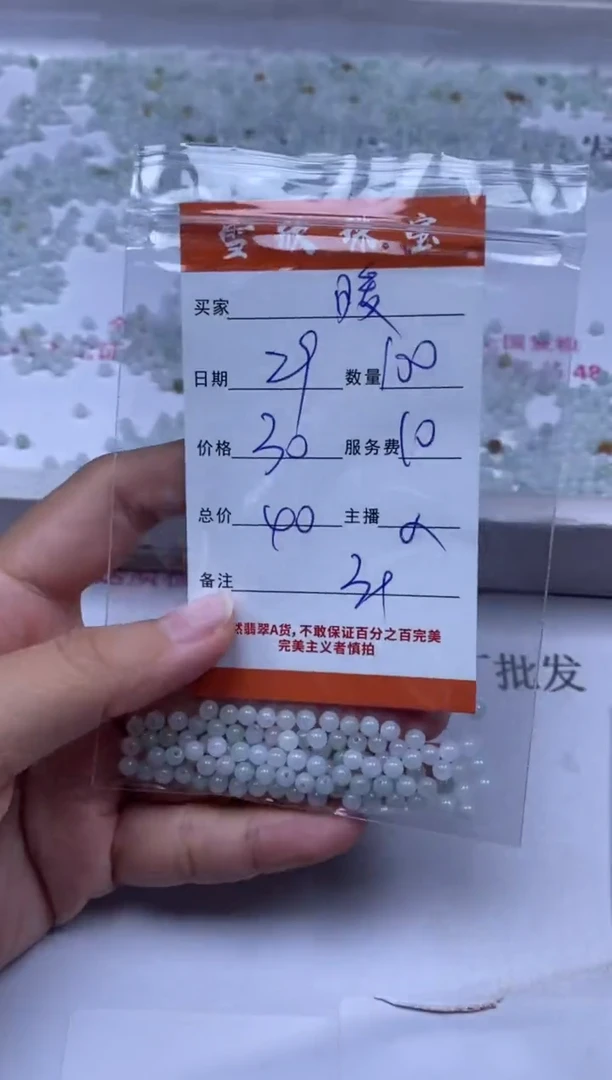 雪欣珠宝
买家 暖
日期 29 数量 100
价格 30 服务费 10
总价 40 主播
备注
然翡翠A货，不敢保证百分之百完美
完美主义者慎拍
批发
48